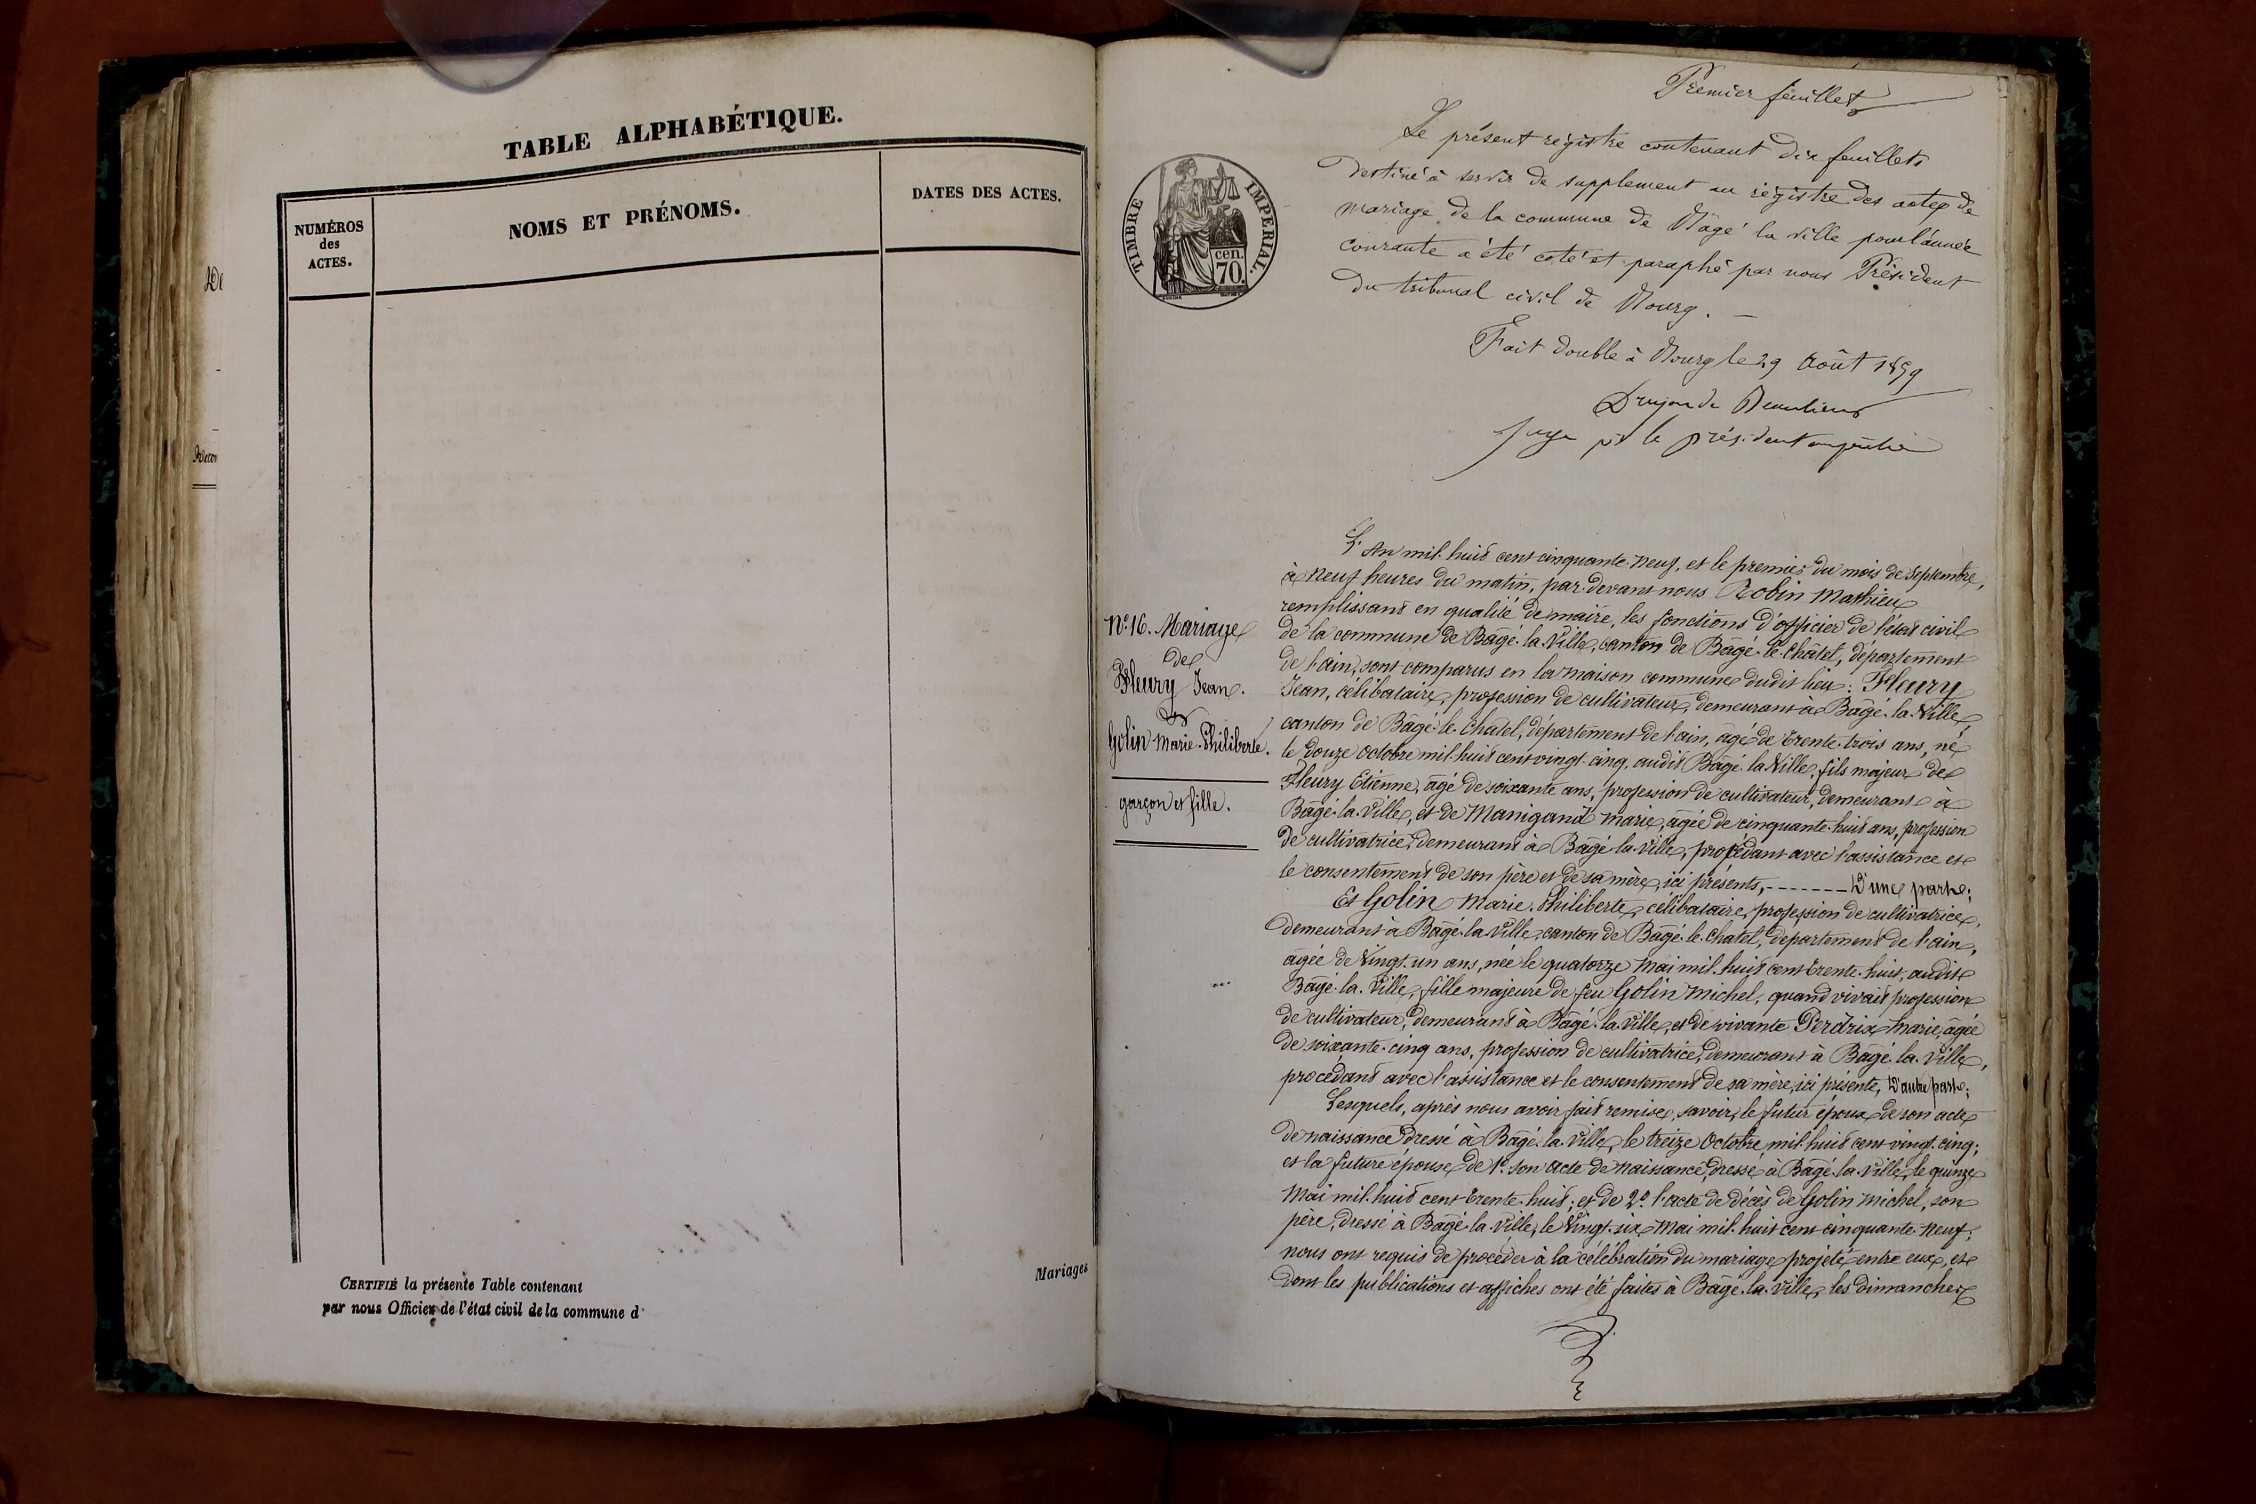 TABLE ALPHABÉTIQUE.
NUMÉROS
des
ACTES.
NOMS ET PRÉNOMS.
DATES DES ACTES.
CERTIFIÉ la présente Table contenant
par nous Officier de l'état civil de la commune d
Mariages
Premier feuillet
TIMBRE IMPERIAL.
70 cen.
Le présent régistre contenant dix feuillets
destiné à servir de supplement au régistre des actes de
mariage de la commune de Bâgé la ville pour l'année
courante a été coté et paraphé par nous Président
du tribunal civil de Bourg. —
Fait double à Bourg le 29 Août 1859
Drujon de Beaulieu
Juge pr le président empêché
N° 16. Mariage
de
Fleury Jean.
&
Golin Marie-Philiberte.
garçon et fille.
L'An mil-huit cent cinquante-neuf, et le premier du mois de Septembre,
à neuf heures du matin, par-devant nous Robin Mathieu
remplissant en qualité de maire, les fonctions d'officier de l'état civil
de la commune de Bâgé-la-Ville, canton de Bâgé-le-Châtel, département
de l'ain, sont comparus en la maison commune dudit lieu: Fleury
Jean, célibataire, profession de cultivateur, demeurant à Bâgé-la-Ville,
canton de Bâgé-le-Chatel, département de l'ain, âgé de trente-trois ans, né
le douze octobre mil-huit cent vingt-cinq, audit Bâgé-la-Ville, fils majeur de
Fleury Etienne, âgé de soixante ans, profession de cultivateur, demeurant à
Bâgé-la-Ville, et de Manigand Marie, âgée de cinquante-huit ans, profession
de cultivatrice, demeurant à Bâgé-la-Ville, procédant avec l'assistance et
le consentement de son père et de sa mère, ici présents, ------- D'une part;
Et Golin Marie-Philiberte, célibataire, profession de cultivatrice,
demeurant à Bâgé-la-Ville, canton de Bâgé-le-Chatel, département de l'ain,
âgée de vingt-un ans, née le quatorze Mai mil-huit cent trente-huit, audit
Bâgé-la-Ville, fille majeure de feu Golin Michel, quand vivait profession
de cultivateur, demeurant à Bâgé-la-Ville, et de vivante Perdrix Marie, âgée
de soixante-cinq ans, profession de cultivatrice, demeurant à Bâgé-la-Ville,
procédant avec l'assistance et le consentement de sa mère, ici présente, D'autre part;
Lesquels, après nous avoir fait remise, savoir, le futur époux de son acte
de naissance dressé à Bâgé-la-Ville, le treize Octobre mil-huit cent vingt-cinq;
et la future épouse, de 1° son acte de naissance, dressé à Bâgé-la-Ville, le quinze
Mai mil-huit cent trente-huit; et de 2° l'acte de décès de Golin Michel, son
père, dressé à Bâgé-la-Ville, le Vingt-six Mai mil-huit cent cinquante-neuf;
nous ont requis de procéder à la célébration du mariage projeté entre eux, et
dont les publications et affiches ont été faites à Bâgé-la-Ville, les dimanches